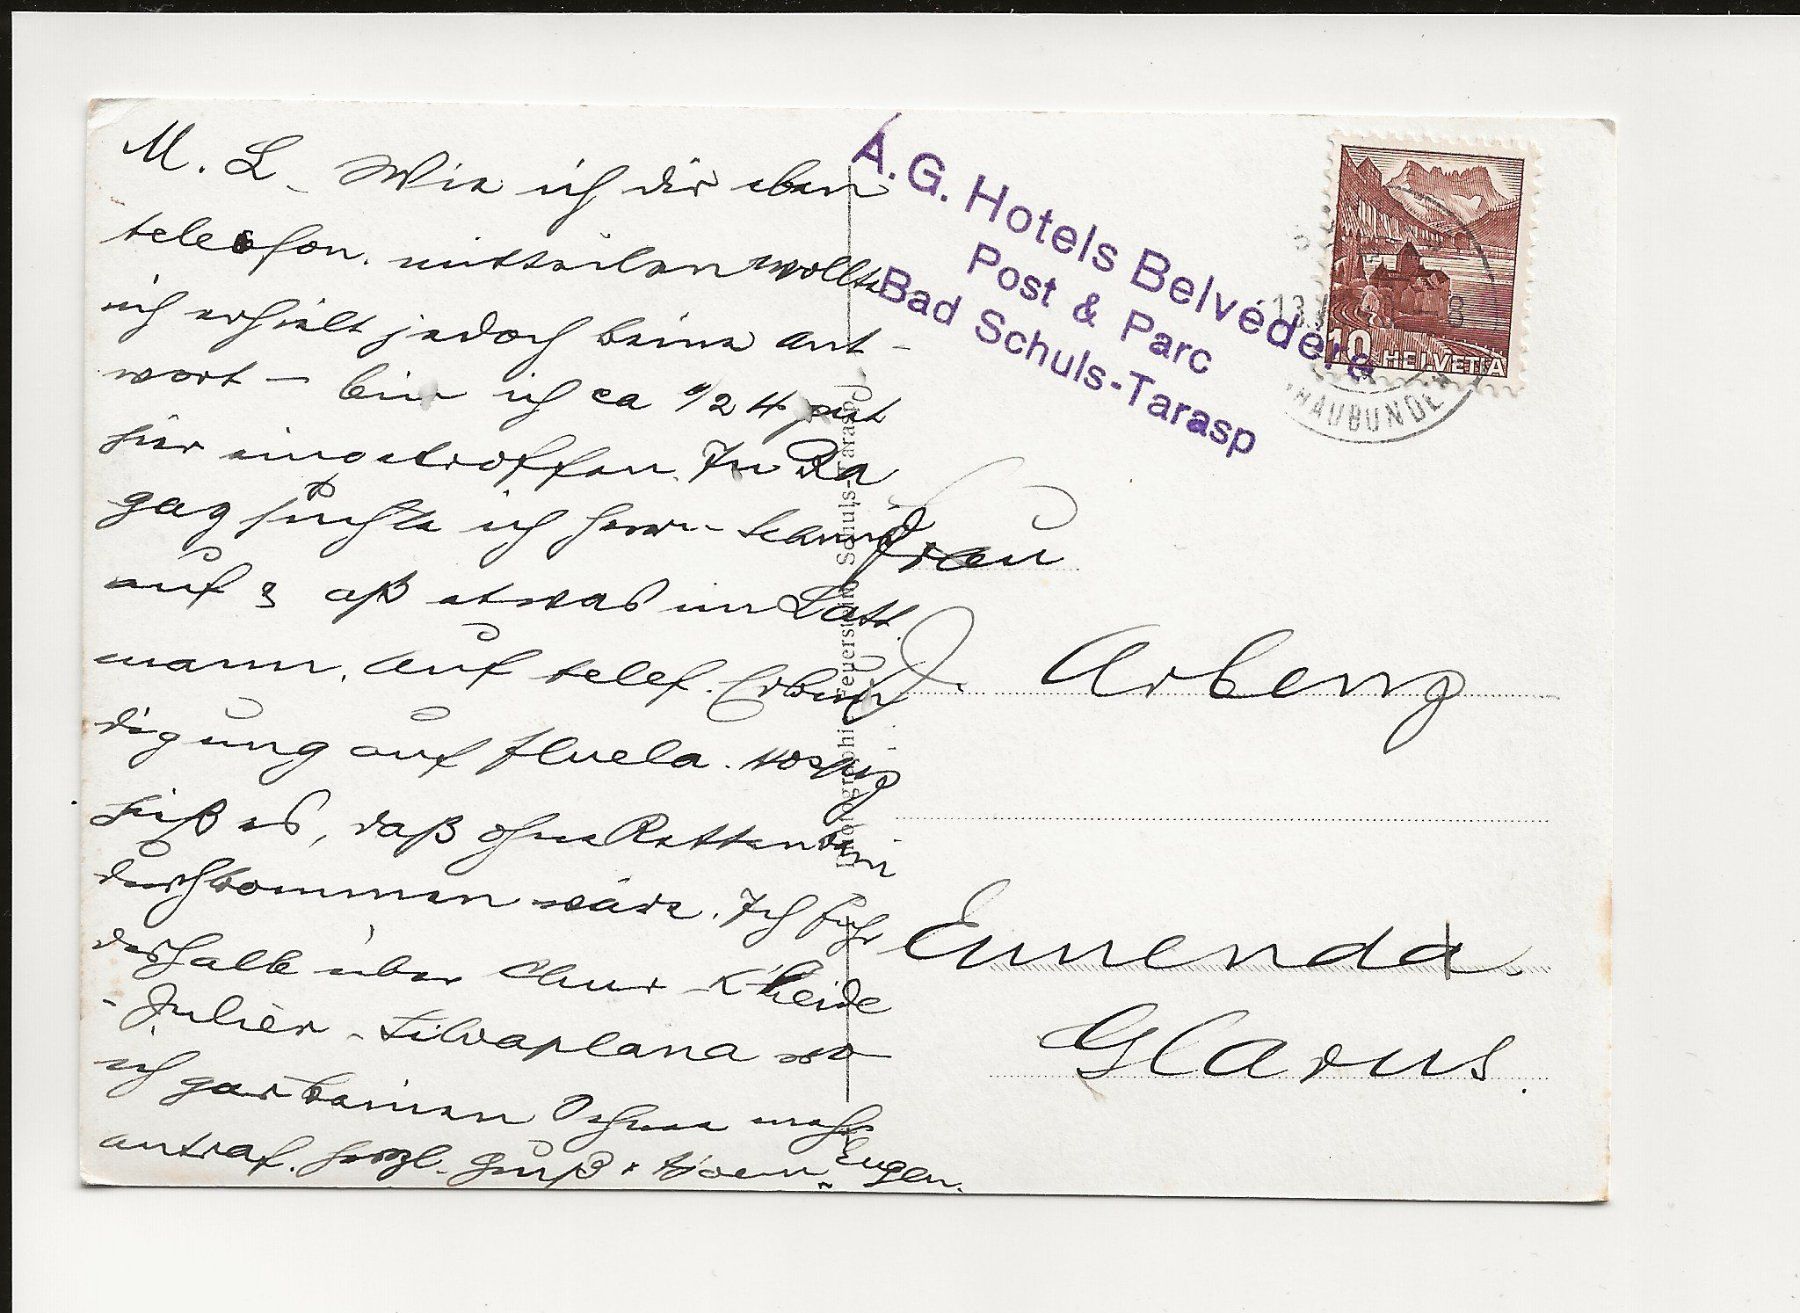 M. L. – Wie ich dir eben
telefon. mitteilen wollte
ich erhielt jedoch keine Ant-
wort – bin ich ca 1/2 4 gut
hier eingetroffen. In Ra
gaz suchte ich Herrn
auf & aß etwas im Latt
mann. Auf telef. Erkun
digung auf Fluela. Hospiz
hieß es, daß ohne Ketten kein
durchkommen wäre. Ich fuhr
deshalb über Chur – L'Heide
- Julier - Silvaplana wo
ich gar keinen Schnee mehr
antraf. Herzl. Gruß & Eugen.
A.G. Hotels Belvédère
Post & Parc
Bad Schuls-Tarasp
10 HELVETIA
13.
GRAUBUNDEN
Photographie Feuerstein Schuls-Tarasp
Frau
J. Arbenz
Ennenda.
Glarus.